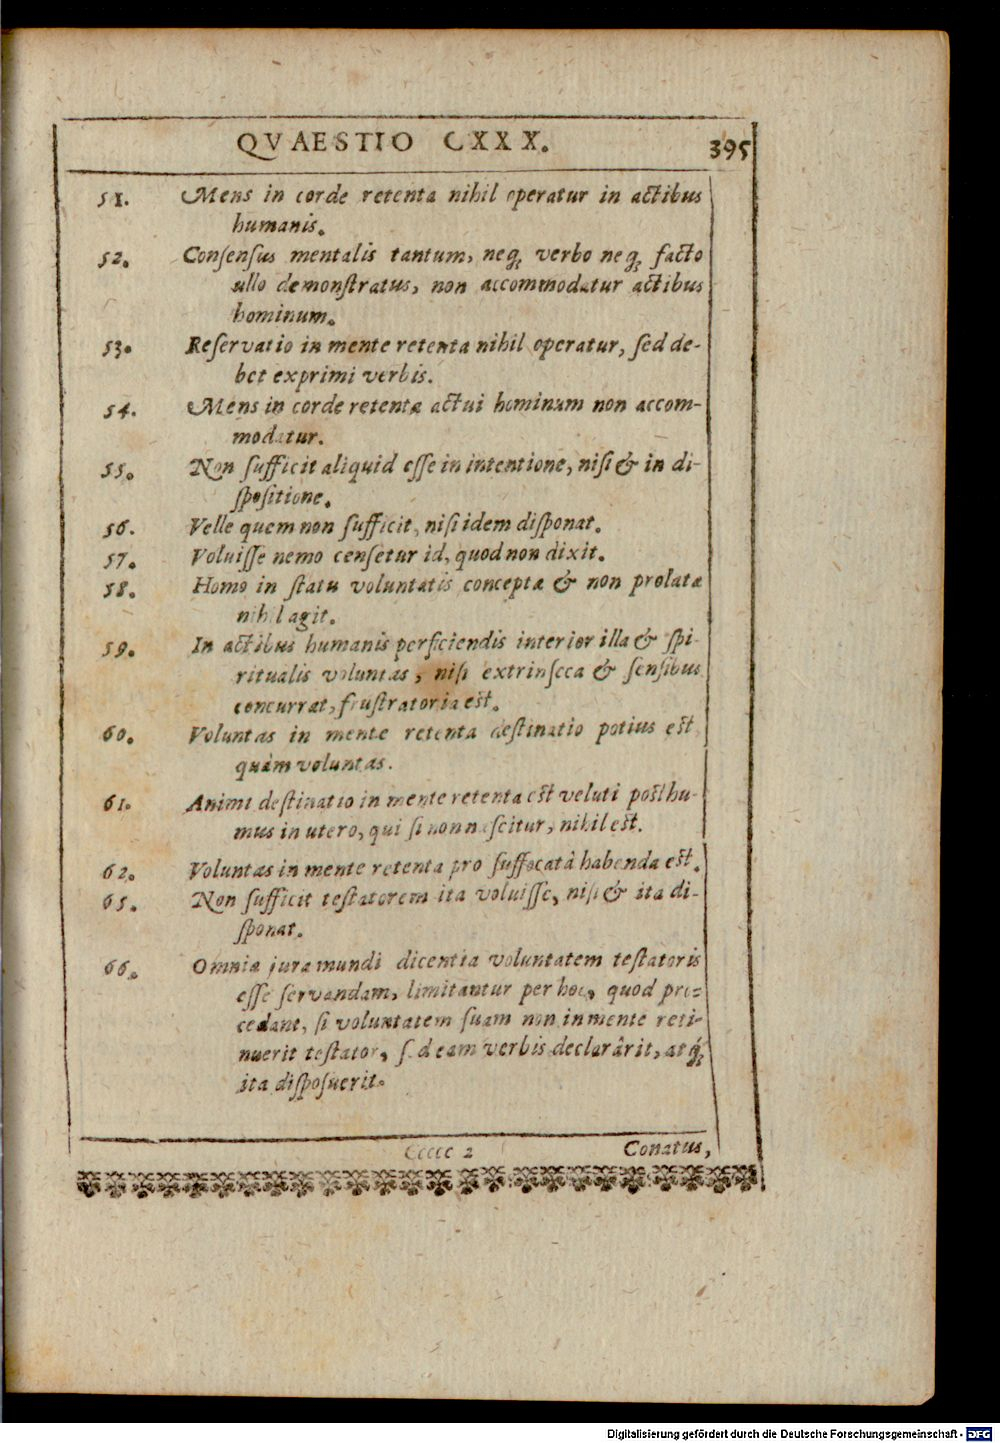 QVAESTIO CXXX. 395
51. Mens in corde retenta nihil operatur in actibus
humanis.
52. Conſenſus mentalis tantum, neq; verbo neq; facto
ullo demonſtratus, non accommodatur actibus
hominum.
53. Reſervatio in mente retenta nihil operatur, ſed de-
bet exprimi verbis.
54. Mens in corde retenta actui hominum non accom-
modatur.
55. Non ſufficit aliquid eſſe in intentione, niſi & in di-
ſpoſitione.
56. Velle quem non ſufficit, niſi idem diſponat.
57. Voluiſſe nemo cenſetur id, quod non dixit.
58. Homo in ſtatu voluntatis conceptæ & non prolatæ
nihil agit.
59. In actibus humanis perficiendis interior illa & ſpi-
ritualis voluntas, niſi extrinſeca & ſenſibus
concurrat, fruſtratoria est.
60. Voluntas in mente retenta deſtinatio potius est
quàm voluntas.
61. Animi deſtinatio in mente retenta est veluti posthu-
mus in utero, qui ſi non naſcitur, nihil est.
62. Voluntas in mente retenta pro ſuffocatâ habenda est.
65. Non ſufficit teſtatorem ita voluiſſe, niſi & ita di-
ſponat.
66. Omnia jura mundi dicentia voluntatem teſtatoris
eſſe ſervandam, limitantur per hoc, quod pro-
cedant, ſi voluntatem ſuam non in mente reti-
nuerit teſtator, ſed eam verbis declarârit, atq;
ita diſpoſuerit.
Ccccc 2 Conatus,
Digitalisierung gefördert durch die Deutsche Forschungsgemeinschaft - DFG